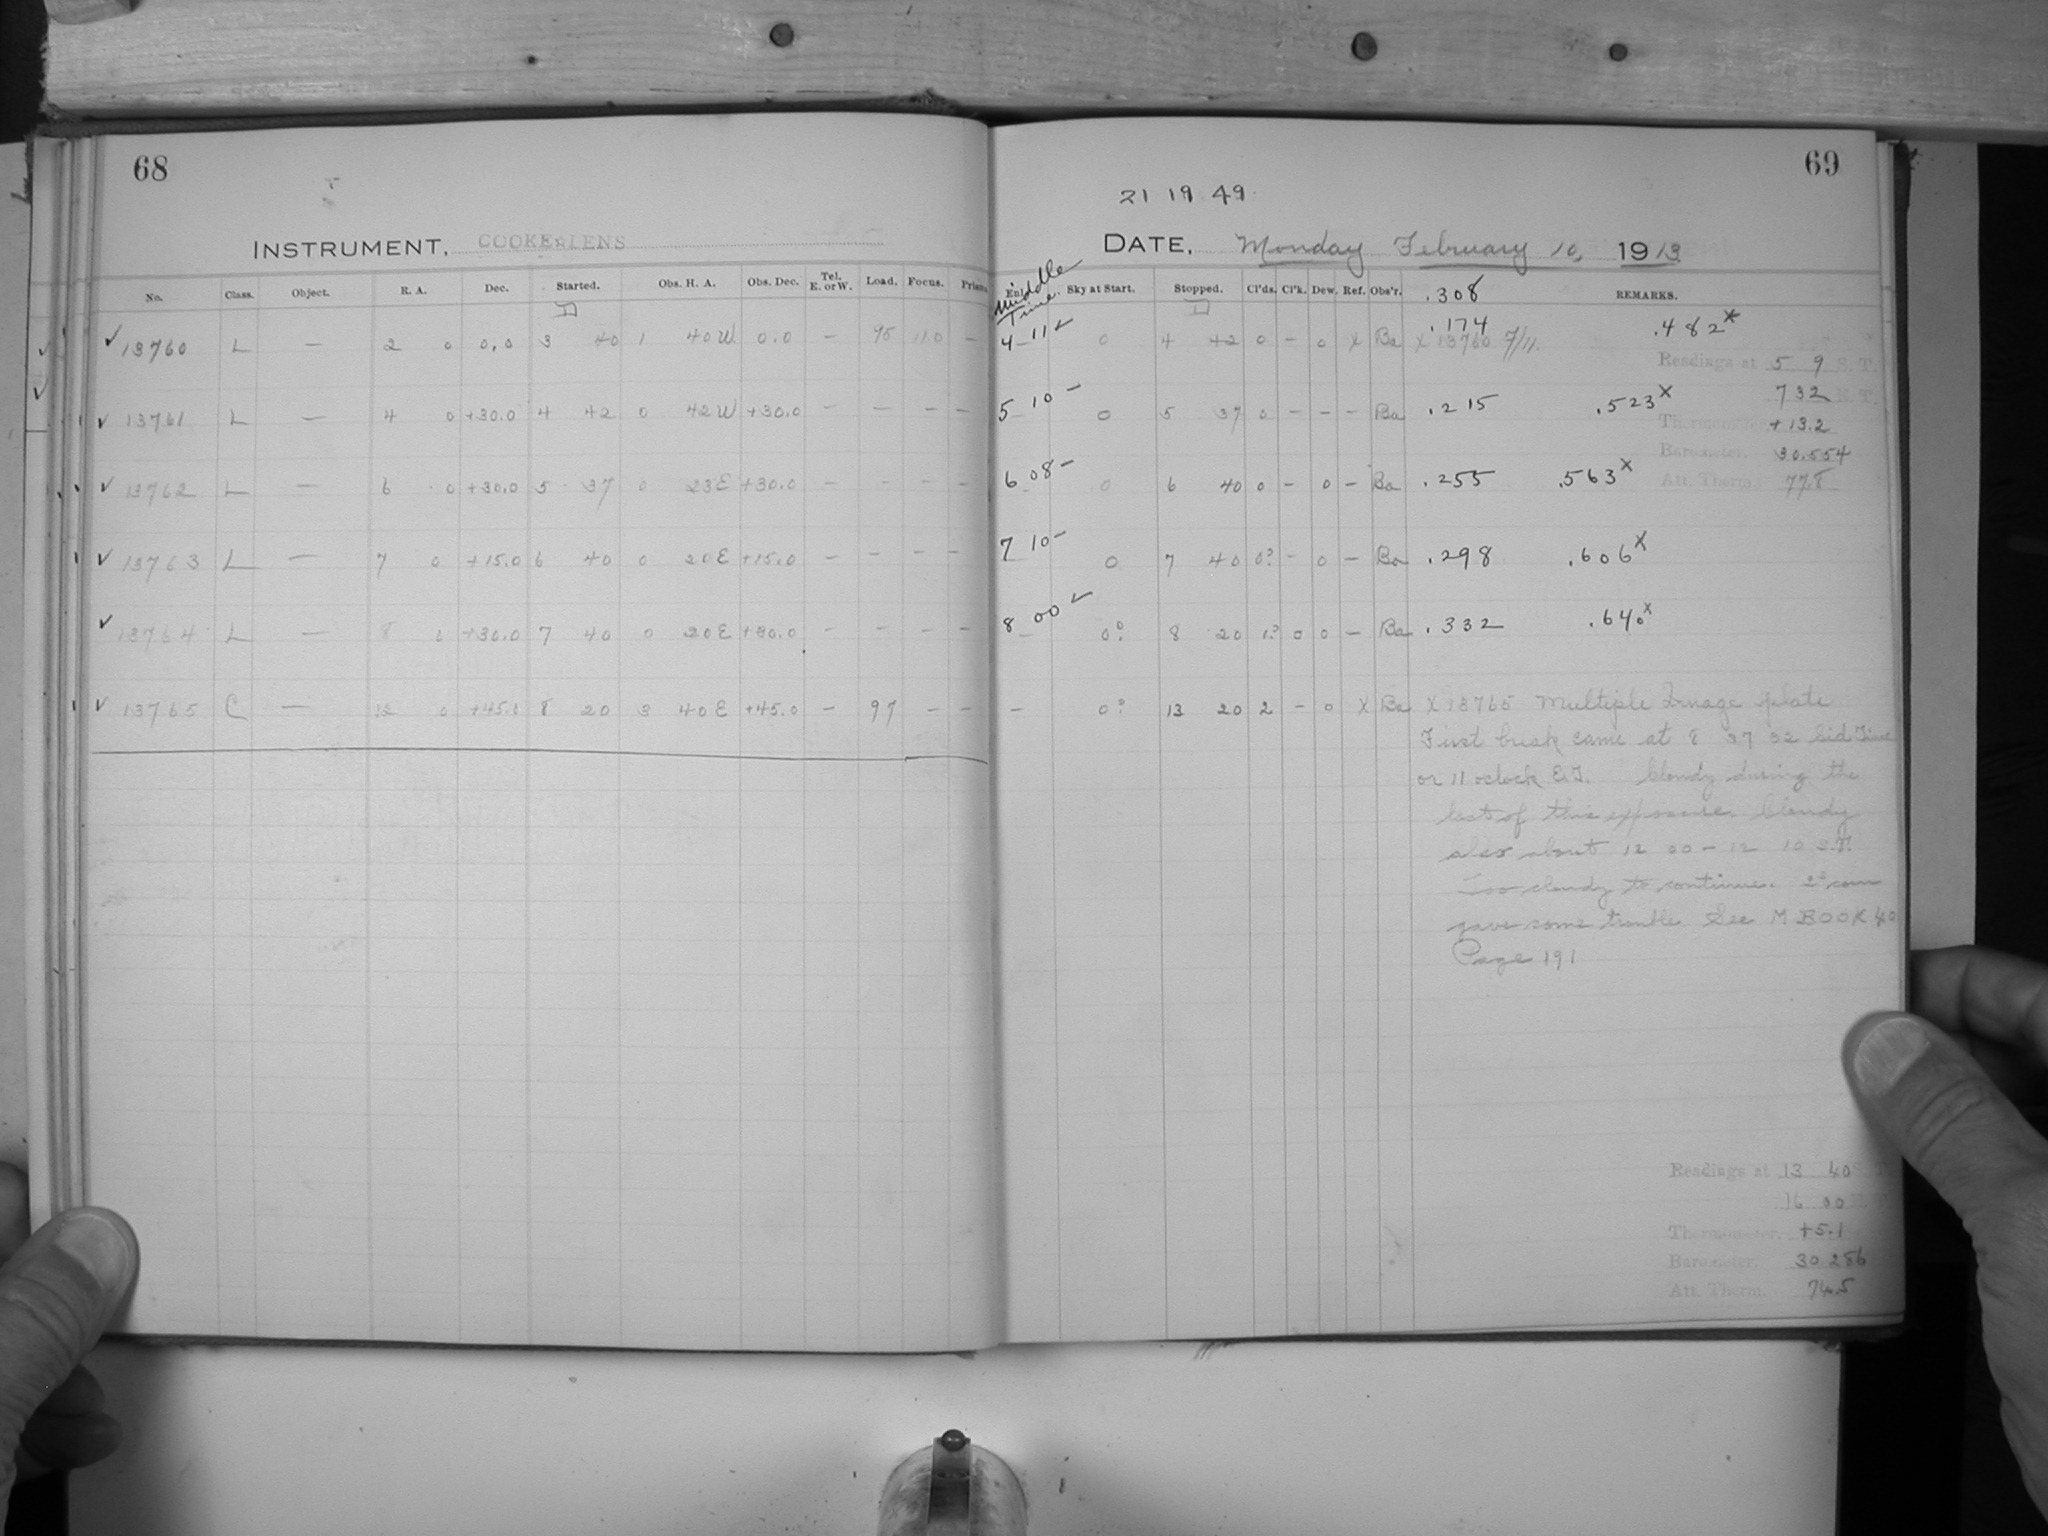 68
INSTRUMENT, COOKE LENS
No. Class. Object. R. A. Dec. Started. Obs. H. A. Obs. Dec. Tel. E. or W. Load. Focus. Prism
✓ 13760 L — 2 0 0.0 3 40 1 40W 0.0 — 95 11.0 —
✓ 13761 L — 4 0 +30.0 4 42 0 42W +30.0 — — — —
✓ 13762 L — 6 0 +30.0 5 37 0 23E +30.0 — — — —
✓ 13763 L — 7 0 +15.0 6 40 0 20E +15.0 — — — —
✓ 13764 L — 8 0 +30.0 7 40 0 20E +30.0 — — — —
✓ 13765 C — 12 0 +45.0 8 20 3 40E +45.0 — 97 — —
69
21 19 49
DATE, Monday February 10, 1913
Middle Time. Sky at Start. Stopped. Cl'ds. Cl'k. Dew. Ref. Obs'r. .308 REMARKS.
4 11 ✓ 0 4 42 0 — 0 X Ba X 13760 7/11. .174 .482 X
Readings at 5 9 S. T.
7 32 E. T.
5 10 — 0 5 37 0 — — — Ba .215 .523 X
Thermometer. +13.2
Barometer. 30.554
6 08 — 0 6 40 0 — 0 — Ba .255 .563 X
Att. Therm. 77.8
7 10 — 0 7 40 0? — 0 — Ba .298 .606 X
8 00 ✓ 0? 8 20 1? 0 0 — Ba .332 .640 X
— 0? 13 20 2 — 0 X Ba X 13765 Multiple Image plate
First break came at 8 37 32 Sid Time
or 11 oclock E.T. Cloudy during the
last of this exposure. Cloudy
also about 12 00 — 12 10 S.T.
Too cloudy to continue. 2° cam
gave some trouble. See M BOOK 40
Page 191
Readings at 13 40 S. T.
16 00 E. T.
Thermometer. +5.1
Barometer. 30.286
Att. Therm. 74.5